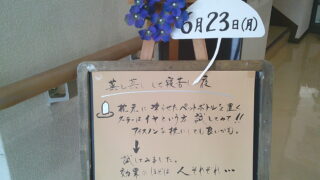 6月23日(月)
蒸し蒸しした寝苦しい夜
枕元に凍らせたペットボトルを置く
クーラーはイヤという方 試してみて!!
アイスノンを枕にしても良いかも。
↓
試してみました。
効果のほどは 人それぞれ・・・